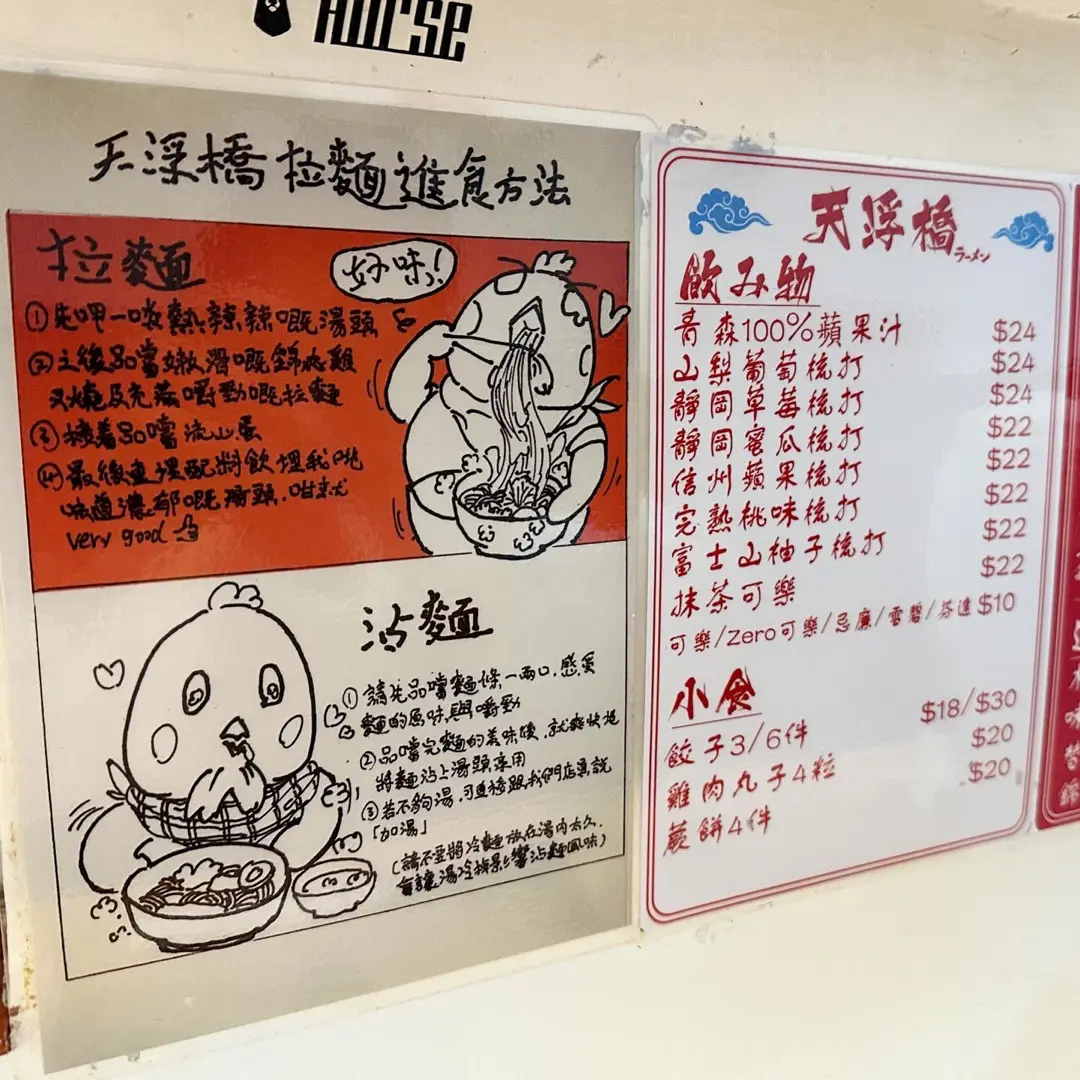 天浮橋 拉麵進食方法
拉麵
好味!
①先呷一啖熱辣辣嘅湯頭
②之後品嚐嫩滑嘅錦爽雞
叉燒及充滿嚼勁嘅拉麵
③接着品嚐流心蛋
④最後直接配料飲埋我哋
味道濃郁嘅湯頭,咁就
very good
沾麵
①請先品嚐麵條一兩口,感受
麵的原味與嚼勁
②品嚐完麵的美味後,就爽快地
將麵沾上湯頭享用
③若不夠湯,可直接跟我們店員說
「加湯」
(請不要將冷麵放在湯內太久,
會讓湯冷掉影響沾麵風味)
天浮橋
ラーメン
飲み物
青森100%蘋果汁 $24
山梨葡萄梳打 $24
靜岡草莓梳打 $24
靜岡蜜瓜梳打 $22
信州蘋果梳打 $22
完熟桃味梳打 $22
富士山柚子梳打 $22
抹茶可樂 $22
可樂/Zero可樂/忌廉/雪碧/芬達 $10
小食
餃子3/6件 $18/$30
雞肉丸子4粒 $20
蕨餅4件 $20
味